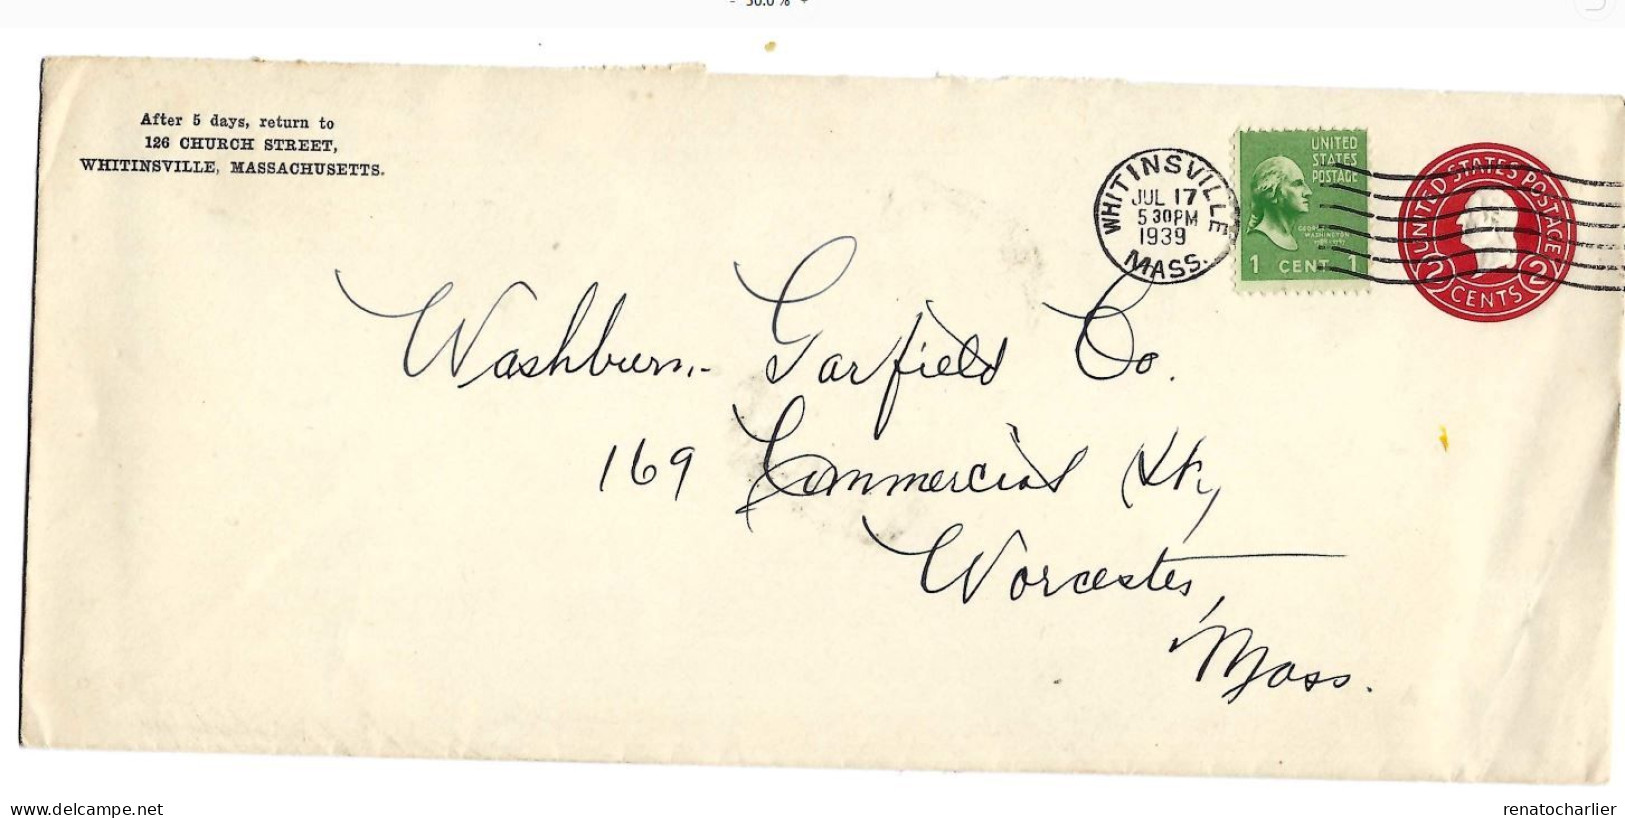 - 50.0 % +
After 5 days, return to
126 CHURCH STREET,
WHITINSVILLE, MASSACHUSETTS.
WHITINSVILLE
JUL 17
5 30PM
1939
MASS.
UNITED
STATES
POSTAGE
GEORGE
WASHINGTON
1 CENT 1
UNITED STATES POSTAGE
2 CENTS 2
Washburn - Garfield Co.
169 Commercial St,
Worcester,
Mass.
www.delcampe.net
renatocharlier